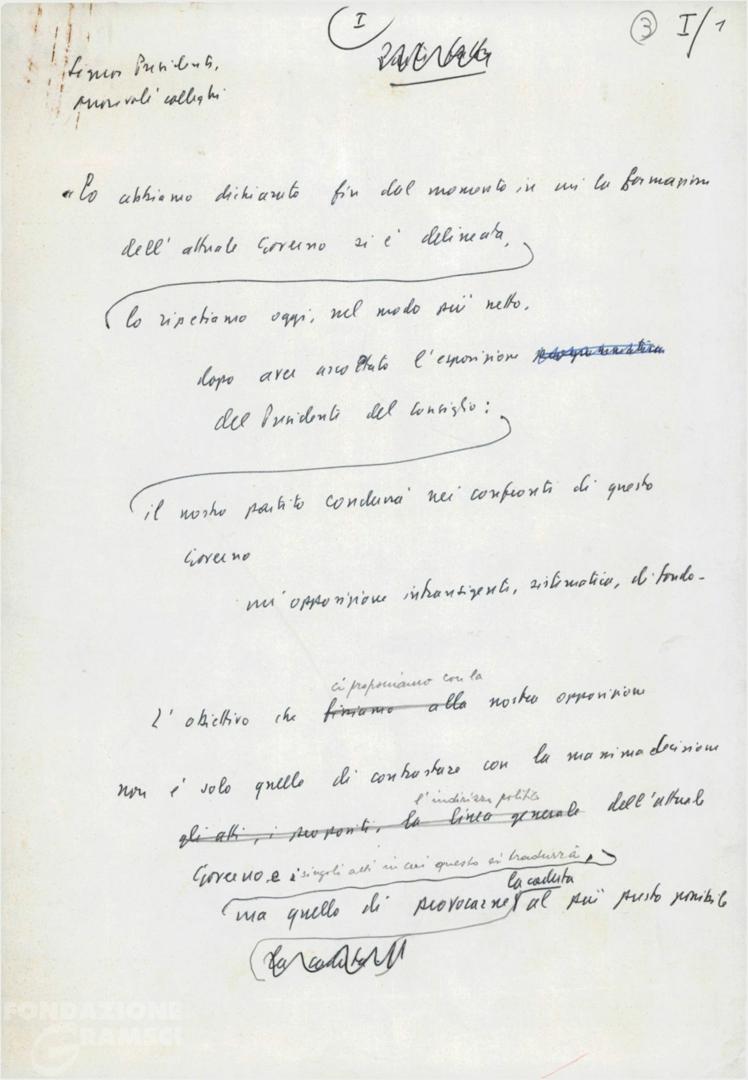 I
③ I/1
Signor Presidente,
onorevoli colleghi
"Lo abbiamo dichiarato fin dal momento in cui la formazione
dell'attuale Governo si è delineata,
lo ripetiamo oggi, nel modo più netto,
dopo aver ascoltato l'esposizione
del Presidente del Consiglio:
il nostro partito condurrà nei confronti di questo
Governo
un'opposizione intransigente, sistematica, di fondo.
ci proponiamo con la
L'obiettivo che fissiamo alla nostra opposizione
non è solo quello di contrastare con la massima decisione
l'indirizzo politico
gli atti, i propositi, la linea generale dell'attuale
Governo e i singoli atti in cui questo si tradurrà,
la caduta
ma quello di provocarne al più presto possibile
la caduta
FONDAZIONE
GRAMSCI